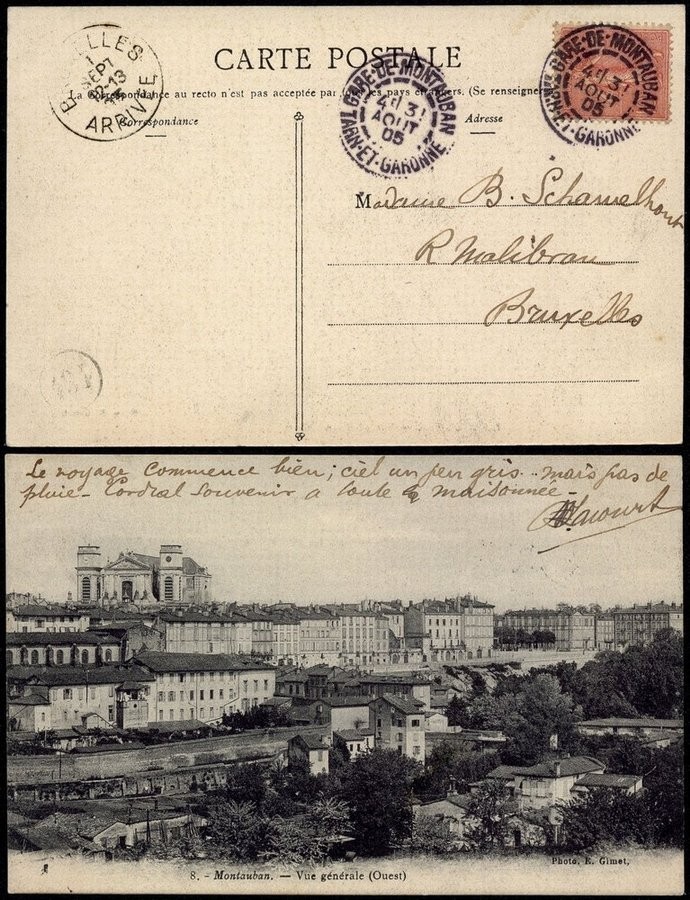 CARTE POSTALE
La Correspondance au recto n'est pas acceptée par tous les pays étrangers. (Se renseigner
Correspondance
Adresse
BRUXELLES
1
SEPT
12-13
ARRIVÉE
GARE-DE-MONTAUBAN
4E 31
AOUT
05
TARN-ET-GARONNE
GARE-DE-MONTAUBAN
4E 31
AOUT
05
TARN-ET-GARONNE
Madame B. Schamelhout
R Malibran
Bruxelles
Le voyage commence bien; ciel un peu gris.. mais pas de
pluie - Cordial souvenir à toute la maisonnée -
8. - Montauban. — Vue générale (Ouest)
Photo. E. Gimet,